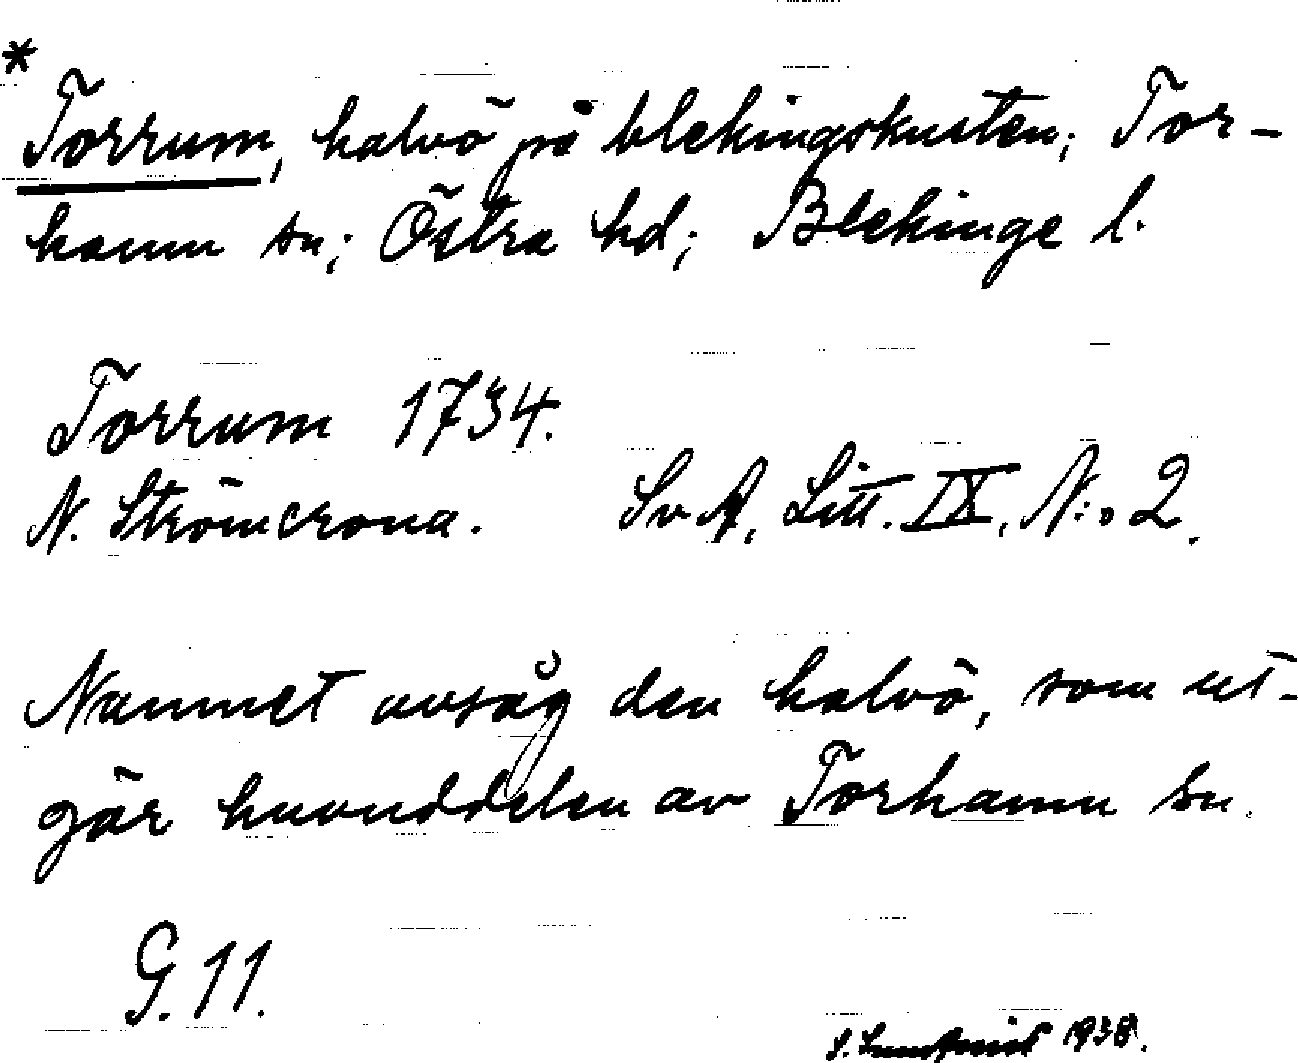 * Torrum, halvö på blekingskusten; Tor-
hamn sn; Östra hd; Blekinge l.
Torrum 1734.
N. Strömcrona. SvA, Litt. IX, N:o 2.
Namnet avsåg den halvö, som ut-
gör huvuddelen av Torhamn sn.
G. 11.
1938.